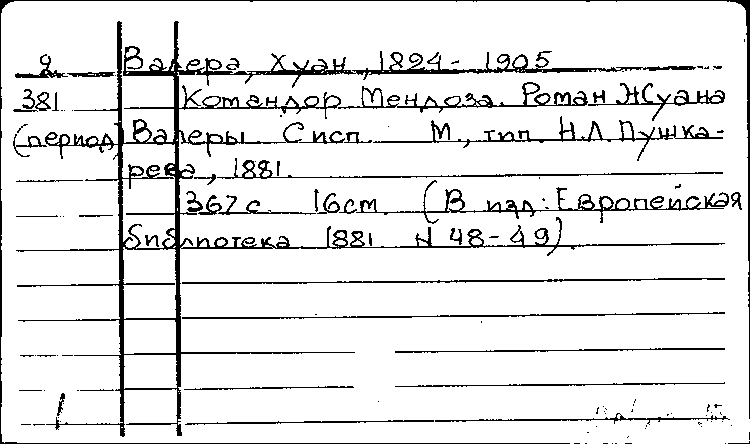 2 Валера, Хуан, 1824- 1905
381 Командор Мендоза. Роман Жуана
(период) Валеры. С исп. М., тип. Н.Л. Пушка-
рева, 1881.
367 с. 16 см. (В изд: Европейская
библиотека 1881 N 48-49).
1.